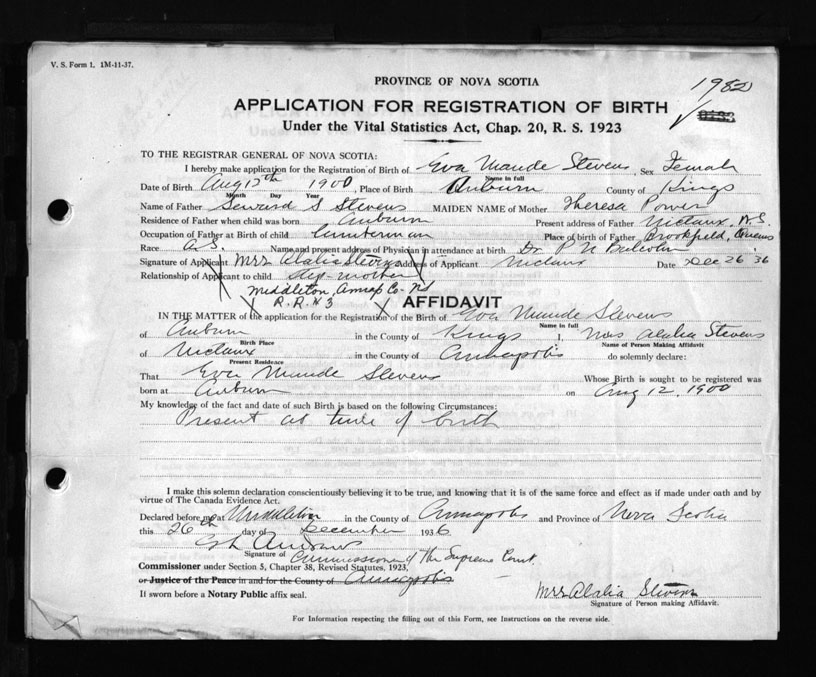 V. S. Form 1, 1M-11-37.
1982
PROVINCE OF NOVA SCOTIA
APPLICATION FOR REGISTRATION OF BIRTH
Under the Vital Statistics Act, Chap. 20, R. S. 1923
TO THE REGISTRAR GENERAL OF NOVA SCOTIA:
I hereby make application for the Registration of Birth of Eva Maude Stevens, Sex Female
Name in full
Date of Birth Aug 12th 1900, Place of Birth Auburn County of Kings
Month Day Year
Name of Father Seward S Stevens MAIDEN NAME of Mother Theresa Power
Residence of Father when child was born Auburn Present address of Father Nictaux, NS
Occupation of Father at Birth of child Lumberman Place of birth of Father Brookfield, Queens
Race Name and present address of Physician in attendance at birth Dr. P N Balcom
Signature of Applicant Mrs Alalia Stevens Address of Applicant Nictaux Date Dec 26 36
Relationship of Applicant to child step-mother
Middleton, Annap Co- NS
R.R. #3
AFFIDAVIT
IN THE MATTER of the application for the Registration of the Birth of Eva Maude Stevens
Name in full
of Auburn in the County of Kings I, Mrs Alalia Stevens
Birth Place Name of Person Making Affidavit
of Nictaux in the County of Annapolis do solemnly declare:
Present Residence
That Eva Maude Stevens Whose Birth is sought to be registered was
born at Auburn on Aug 12, 1900
My knowledge of the fact and date of such Birth is based on the following Circumstances:
Present at time of birth
I make this solemn declaration conscientiously believing it to be true, and knowing that it is of the same force and effect as if made under oath and by
virtue of The Canada Evidence Act.
Declared before me at Middleton in the County of Annapolis and Province of Nova Scotia
this 26th day of December 1936
Signature of Commissioner of the Supreme Court
Commissioner under Section 5, Chapter 38, Revised Statutes, 1923.
or Justice of the Peace in and for the County of Annapolis
If sworn before a Notary Public affix seal.
Mrs Alalia Stevens
Signature of Person making Affidavit.
For Information respecting the filling out of this Form, see Instructions on the reverse side.